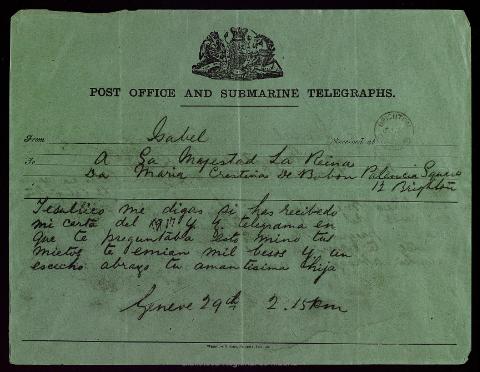 POST OFFICE AND SUBMARINE TELEGRAPHS.
From Isabel Received at
To A La Majestad La Reina
Da Maria Crestina De Bobon Palancia Square
12 Brighton
BRIGHTON
Tesublico me digas si has recebedo
mi carta del 19 y telegrama en
que te preguntaba
mietos te emian mil besos y un
escecho abrazo tu amantisima hija
Geneve 29th 2.15